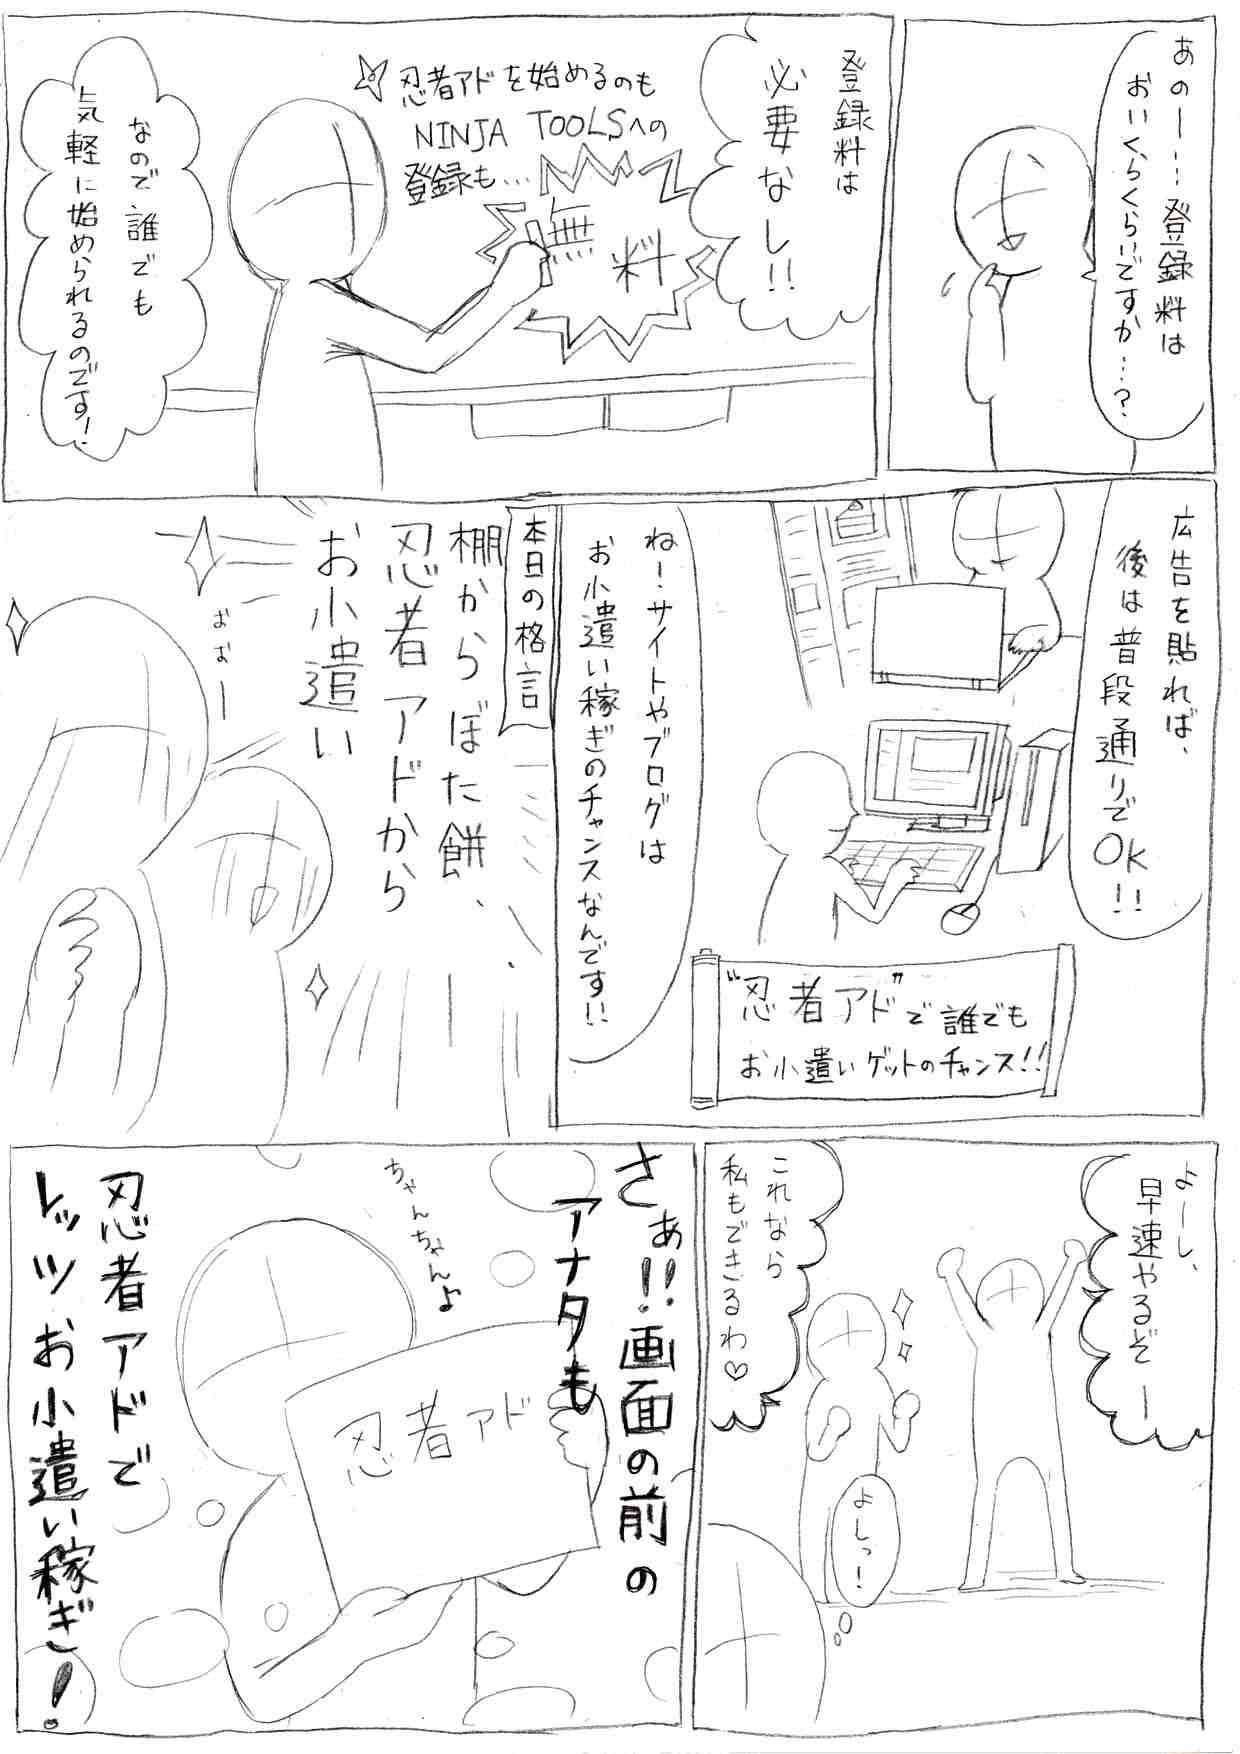 あのー…登録料は
おいくらくらいですか…?
登録料は
必要なし!!
忍者アドを始めるのも
NINJA TOOLSへの
登録も…
無料
なので誰でも
気軽に始められるのです!
広告を貼れば、
後は普段通りで
OK!!
ねー・サイトやブログは
お小遣い稼ぎのチャンスなんです!!
"忍者アド"で誰でも
お小遣いゲットのチャンス!!
本日の格言
棚からぼた餅、
忍者アドから
お小遣い
おおー
よーし、
早速やるぞー
これなら
私もできるわ♡
よしっ!
さぁ!!画面の前の
アナタも
ちゃんちゃんよ
忍者アド
忍者アドで
レッツお小遣い稼ぎ!